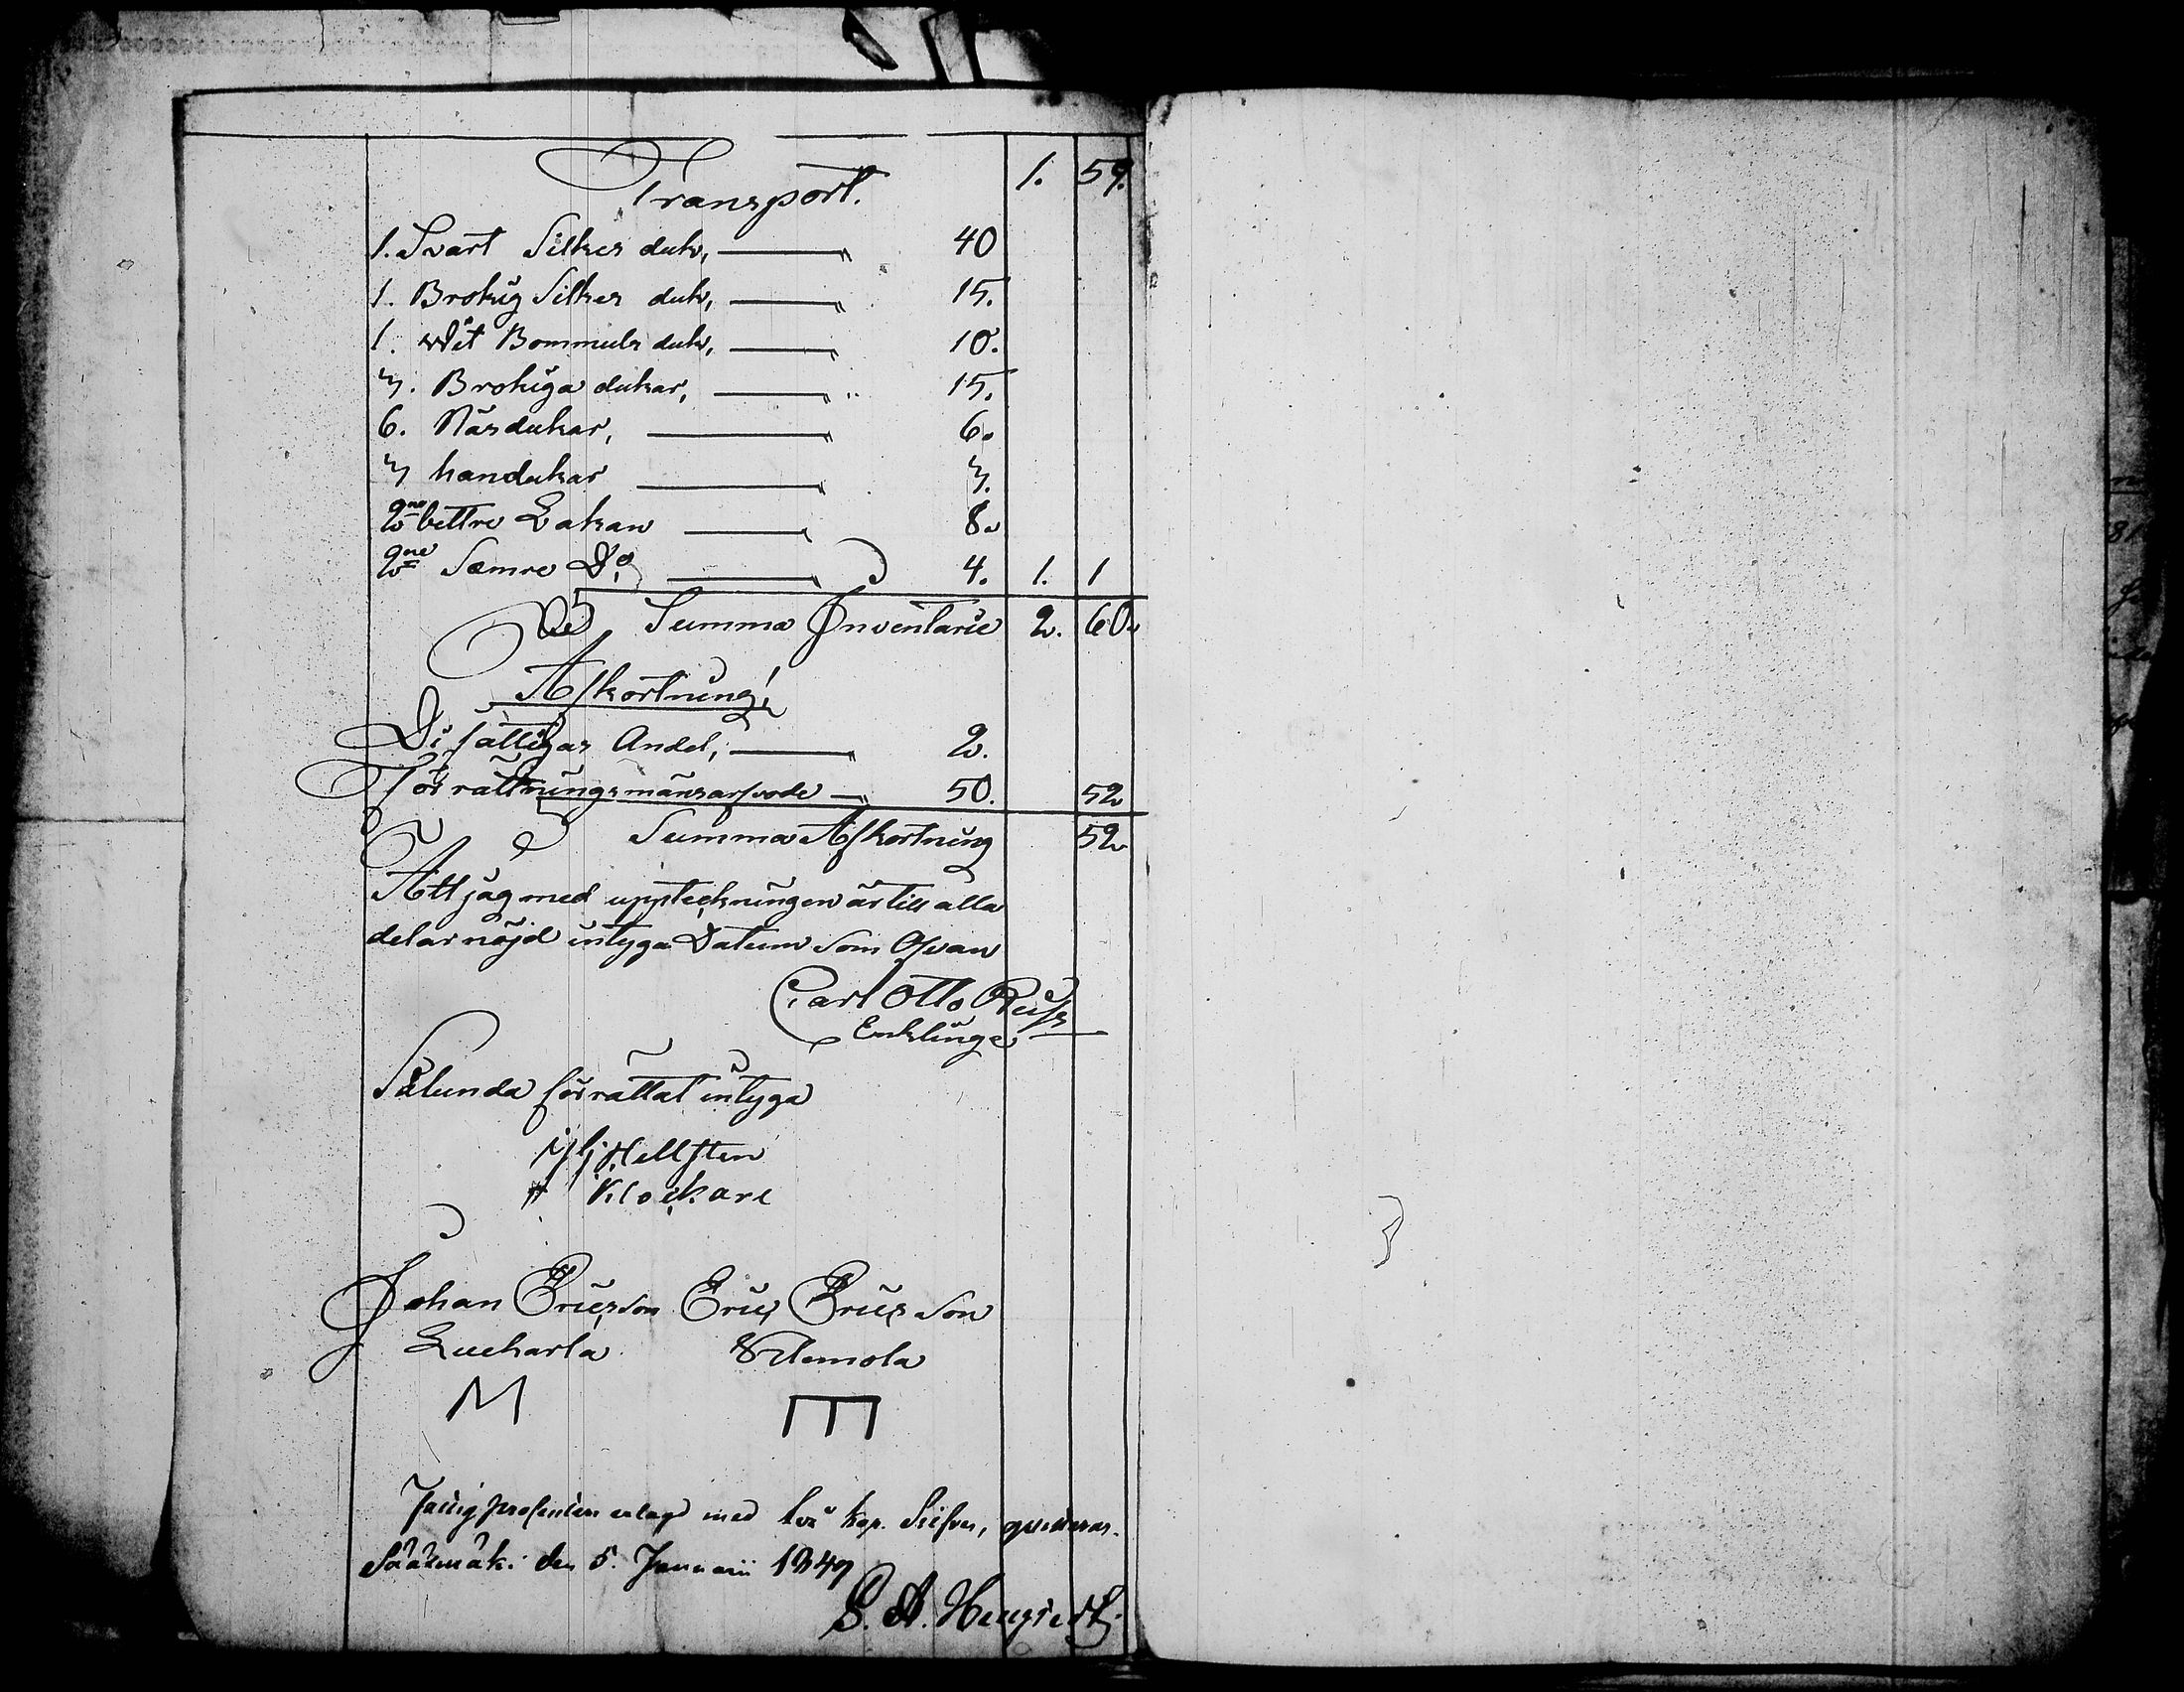 Transport. 1. 59.
1. Svart Silkes duk, 40
1. Brokig Silkes duk, 15.
1. vit Bommuls duk, 10.
3. Brokiga dukar, 15.
6. Näsdukar, 6.
3 handukar 3.
2ne bettre Lakan 8.
2ne Sæmre Do 4. 1. 1
Summa Inventarie 2. 60.
Afkortning,
De fattigas Andel, 2.
Förrättningsmäns arfvode 50. 52
Summa Afkortning 52
Att jag med uppteckningen är till alla
delar nöjd intyga Datum som Ofvan
Carl Otto
Enklinge
Sålunda förrättat intyga
Hellsten
Klockare
Johan Ericsson Eric Ericsson
Luckarla
M E
erlagd med två kop. Silfver, qvitteras.
Sääxmäki den 5. Januarii 1849